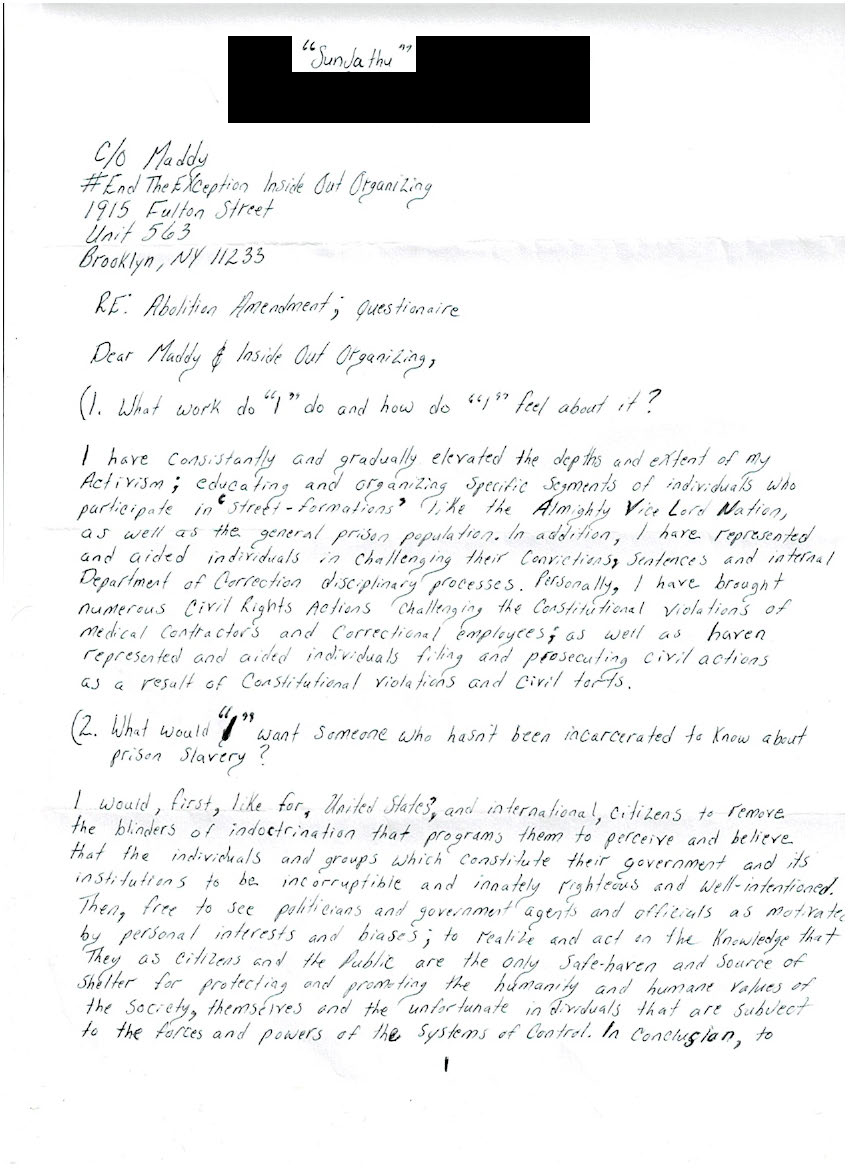 “Sundathu”
C/O Maddy
#EndTheEXCeption Inside Out Organizing
1915 Fulton Street
Unit 563
Brooklyn, NY 11233
RE: Abolition Amendment; Questionaire
Dear Maddy & Inside Out Organizing,
(1. What work do “I” do and how do “I” feel about it?
I have consistantly and gradually elevated the depths and extent of my
Activism; educating and organizing specific segments of individuals who
participate in “street-formations” like the Almighty Vice Lord Nation,
as well as the general prison population. In addition, I have represented
and aided individuals in challenging their Convictions, Sentences and internal
Department of Correction disciplinary processes. Personally, I have brought
numerous Civil Rights Actions challenging the Constitutional violations of
Medical Contractors and Correctional employees; as well as haven
represented and aided individuals filing and prosecuting civil actions
as a result of Constitutional violations and Civil torts.
(2. What would “I” want someone who hasn't been incarcerated to Know about
prison Slavery?
I would, first, like for, United States, and international, citizens to remove
the blinders of indoctrination that programs them to perceive and believe
that the individuals and groups which constitute their government and its
institutions to be incorruptible and innately righteous and well-intentioned.
Then, free to see politicians and government agents and officials as motivated
by personal interests and biases; to realize and act on the Knowledge that
They as citizens and the Public are the only safe-haven and source of
shelter for protecting and promoting the humanity and humane values of
the Society, themselves and the unfortunate individuals that are subject
to the forces and powers of the Systems of Control. In Conclusion, to
1